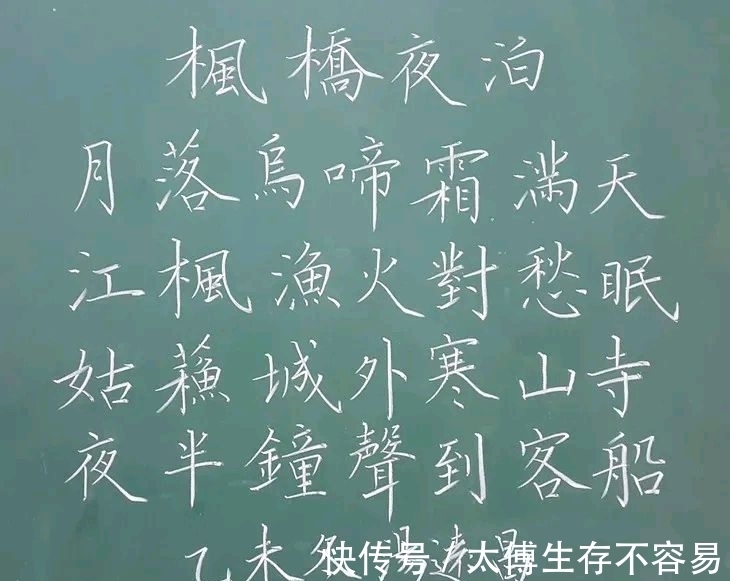 楓橋夜泊
月落烏啼霜滿天
江楓漁火對愁眠
姑蘓城外寒山寺
夜半鐘聲到客船
乙未
快传号/太傅生存不容易